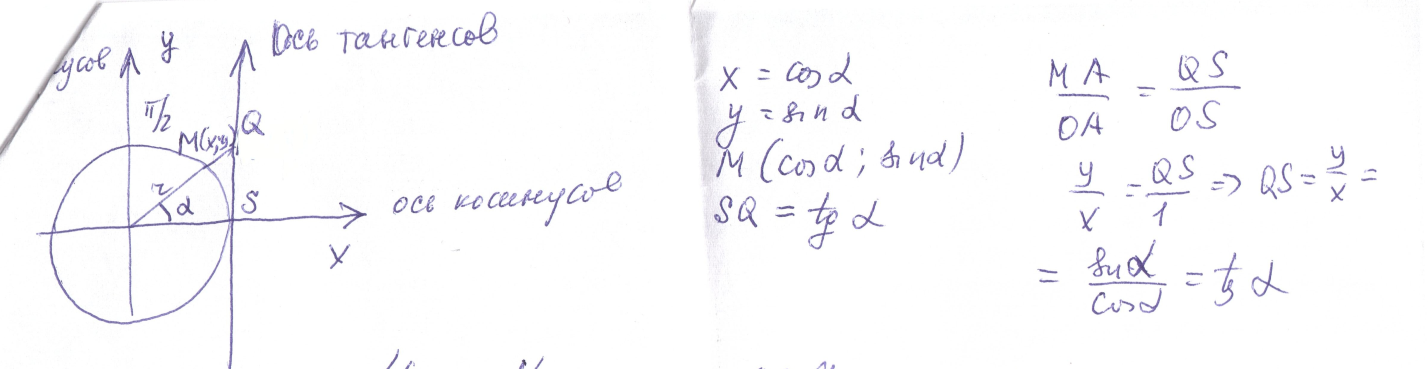 усов y Ось тангенсов
π/2
Q
M(x;y)
r α S
ось косинусов
x
x = cos α
y = sin α
M (cos α ; sin α)
SQ = tg α
MA/OA = QS/OS
y/x = QS/1 => QS = y/x =
= sin α/cos α = tg α